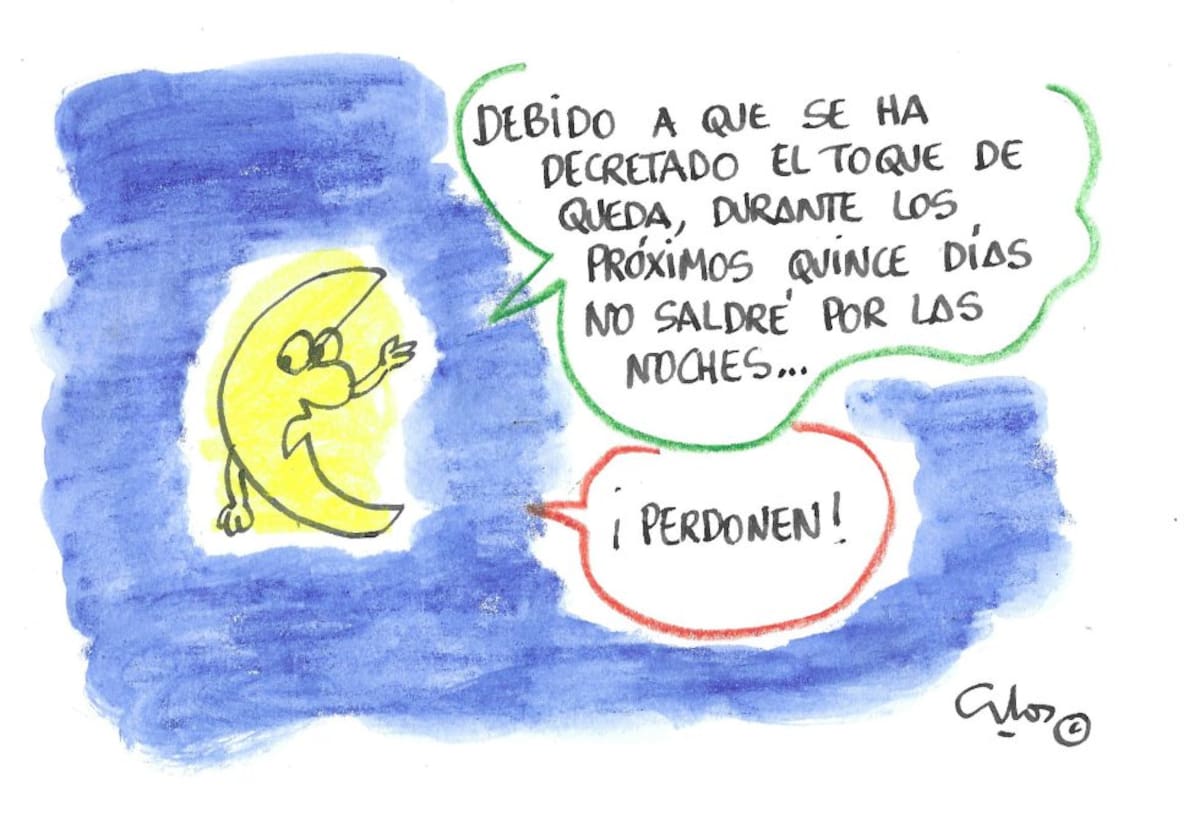 DEBIDO A QUE SE HA
DECRETADO EL TOQUE DE
QUEDA, DURANTE LOS
PRÓXIMOS QUINCE DÍAS
NO SALDRÉ POR LAS
NOCHES...
¡PERDONEN!